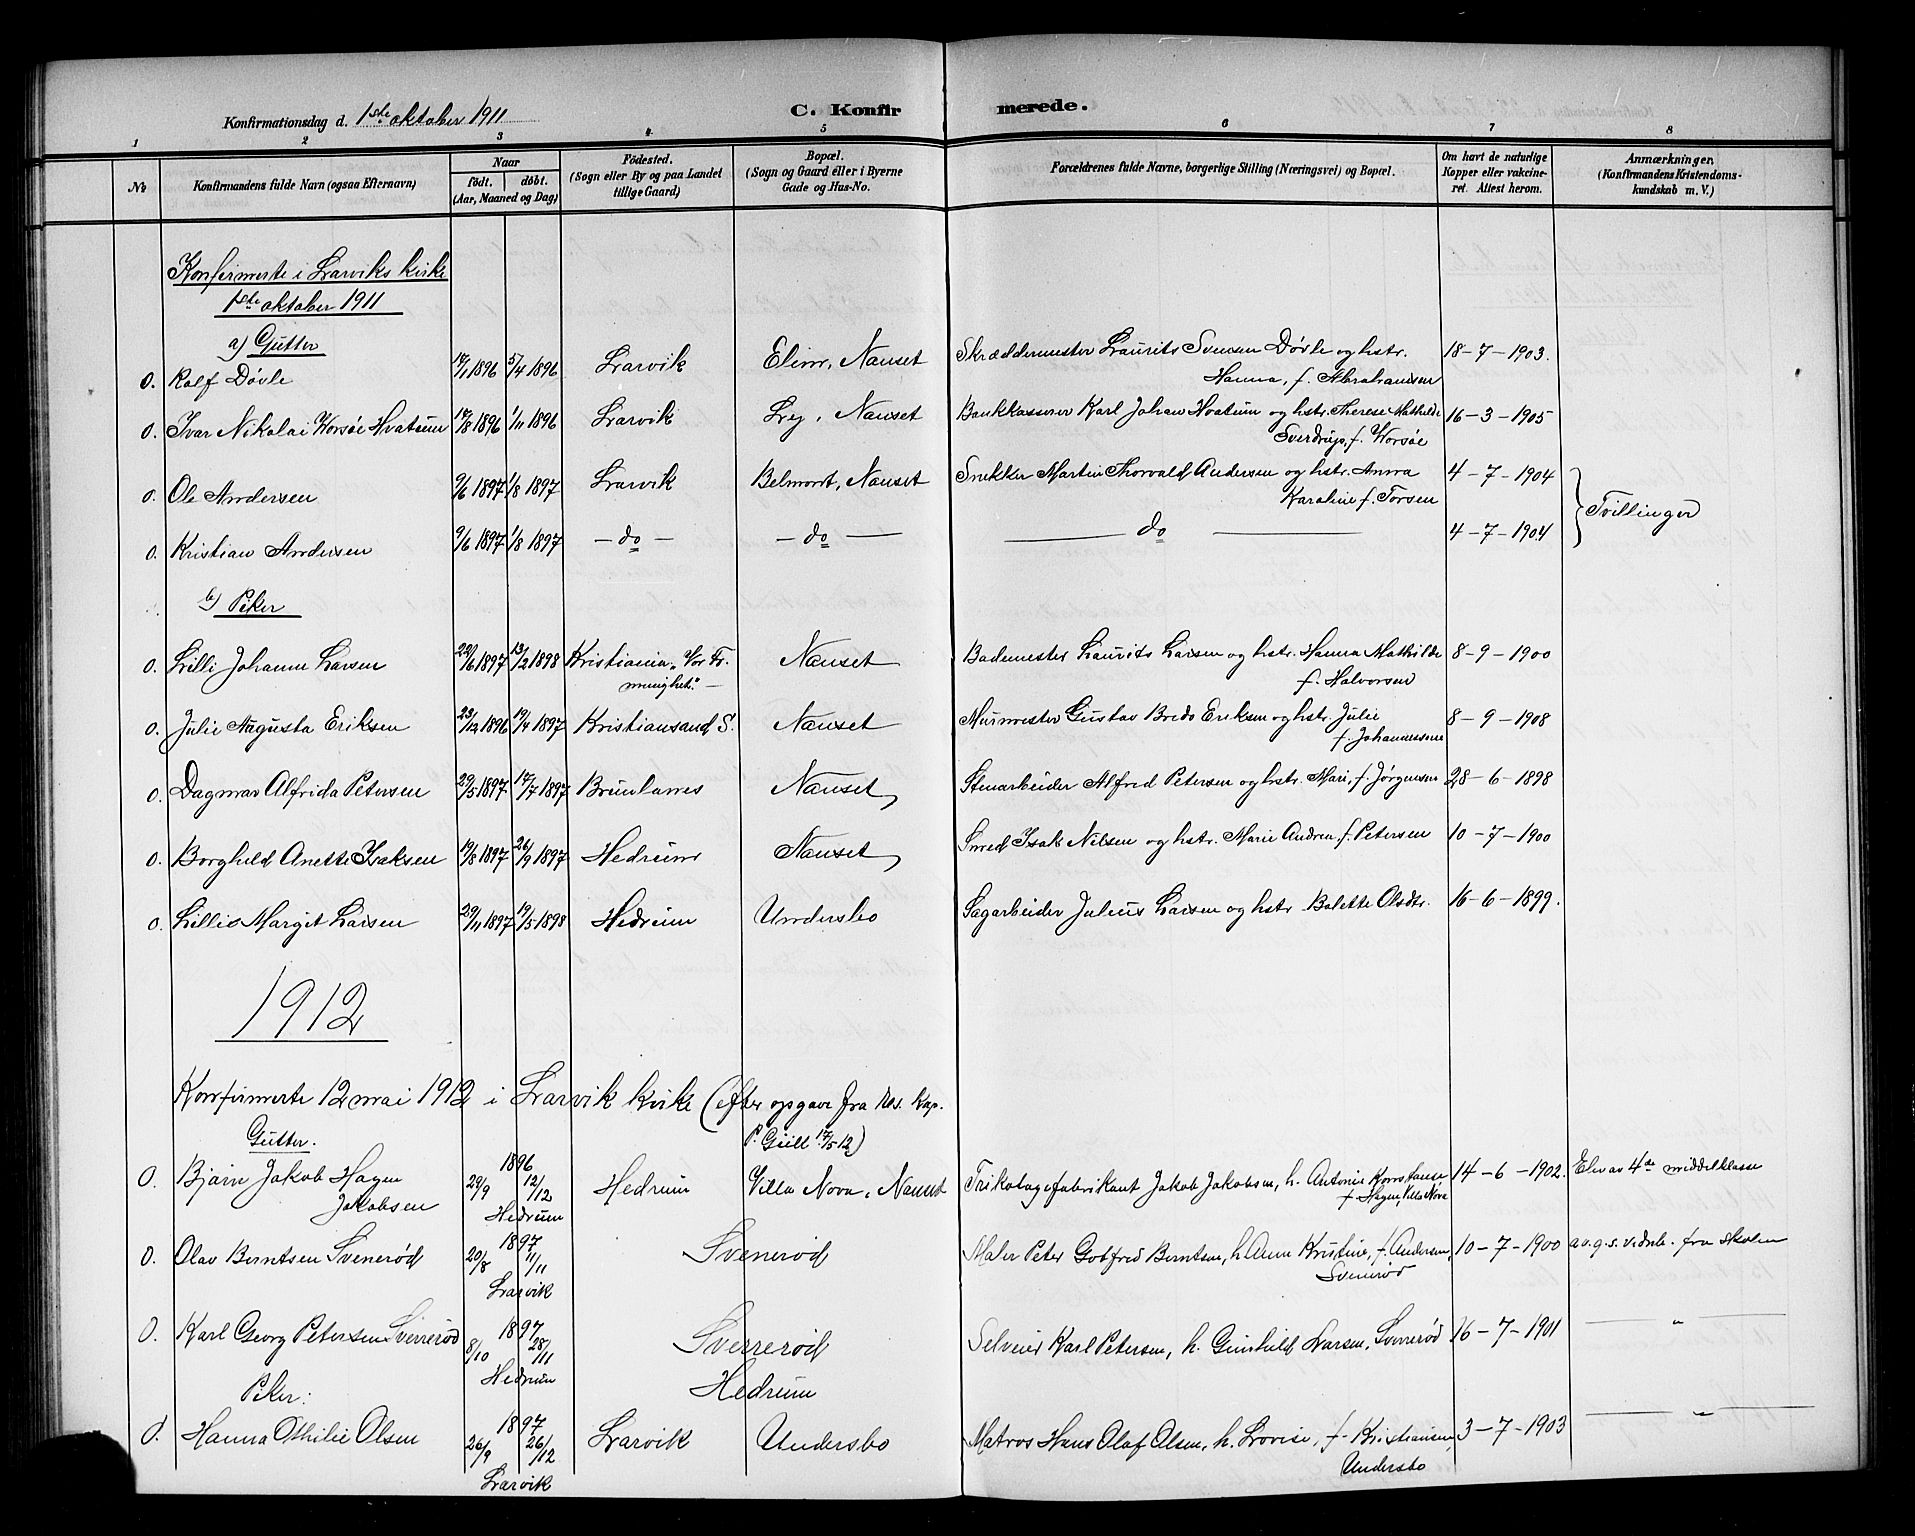 Konfirmationsdag d. 1ste oktober 1911
C. Konfirmerede.
1 2 3 4 5 6 7 8
No
Konfirmandens fulde Navn (ogsaa Efternavn)
Naar
født. døbt.
(Aar, Maaned og Dag)
Fødested.
(Sogn eller By og paa Landet
tillige Gaard)
Bopæl.
(Sogn og Gaard eller i Byerne
Gade og Hus-No.
Forældrenes fulde Navne, borgerlige Stilling (Næringsvei) og Bopæl.
Om havt de naturlige
Kopper eller vakcine-
ret. Attest herom.
Anmærkninger.
(Konfirmandens Kristendoms-
kundskab m. V.)
Konfirmerte i Larviks kirke
1ste oktober 1911
a) Gutter
0. Ralf Døvle 1896 5/4 1896 Larvik Elim, Nanset Skræddermester Laurits Svensen Døvle og hstr. 18-7-1903.
Hanna, f. Abrahamsen
0. Ivar Nikolai Worsøe Hvatum 1896 1/11 1896 Larvik Lej, Nanset Bankkasserer Karl Johan Hvatum og hstr. Therese Mathilde 16-3-1905
Sverdrup, f. Worsøe
0. Ole Andersen 9/6 1897 1/8 1897 Larvik Belmont, Nanset Snekker Martin Thorvald Andersen og hstr. Anna 4-7-1904
Karoline f. Torsen
Tvillinger
0. Kristian Andersen 9/6 1897 1/8 1897 - do - - do - do 4-7-1904
b) Piker
0. Lilli Johanne Larsen 22/6 1897 13/2 1898 Kristiania, "Vor Fr. Nanset Bademester Laurits Larsen og hstr. Hanna Mathilde 8-9-1900
menighet." - f. Halvorsen
0. Julie Augusta Eriksen 23/12 1896 19/4 1897 Kristiansand S. Nanset Murmester Gustav Bredo Eriksen og hstr. Julie 8-9-1908
f. Johannessen
0. Dagmar Alfrida Petersen 29/5 1897 1897 Brunlanes Nanset Stenarbeider Alfred Petersen og hstr. Mari, f. Jørgensen 28-6-1898
0. Borghild Anette Isaksen 19/8 1897 26/9 1897 Hedrum Nanset Smed Isak Nilsen og hstr. Marie Andrea, f. Petersen 10-7-1900
0. Lillie Margit Larsen 29/11 1897 19/5 1898 Hedrum Undersbo Sagarbeider Julius Larsen og hstr. Bolette Olsdtr. 16-6-1899.
1912
Konfirmerte 12 mai 1912 i Larvik kirke (efter opgave fra res. kap.
P. Giill 17/5 12)
Gutter.
0. Bjarn Jakob Hagen 1896 29/9 12/12 Hedrum Villa Nova, Nanset Trikotagefabrikant Jakob Jakobsen, h. Antonie Konstanse 14-6-1902. Elev av 4de middelklasse
Jakobsen Hedrum f. Hagen, Villa Nova
0. Olav Berntsen Svenerød 1897 20/8 11/11 Svenerød Maler Peter Godfred Berntsen, h. Anne Kristine, f. Andersen, 10-7-1900 av.g.s. vidnb. fra skolen
Larvik Svenerød
0. Karl Georg Petersen Sverrerød 1897 8/10 28/11 Sverrerød Selveier Karl Petersen, h. Gunhild Larsen, Svenerød 16-7-1901 - " -
Hedrum Hedrum
Piker:
0. Hanna Othilie Olsen 1897 26/9 26/12 Larvik Undersbo Matros Hans Olaf Olsen, h. Lovise, f. Kristiansen, 3-7-1903 - " -
Larvik Undersbo